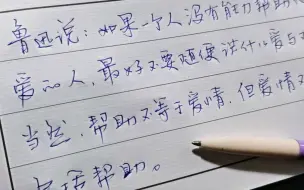 鲁迅说：如果一个人没有能力帮助
爱的人，最好不要随便谈什么爱与
当然，帮助不等于爱情，但爱情
包括帮助。